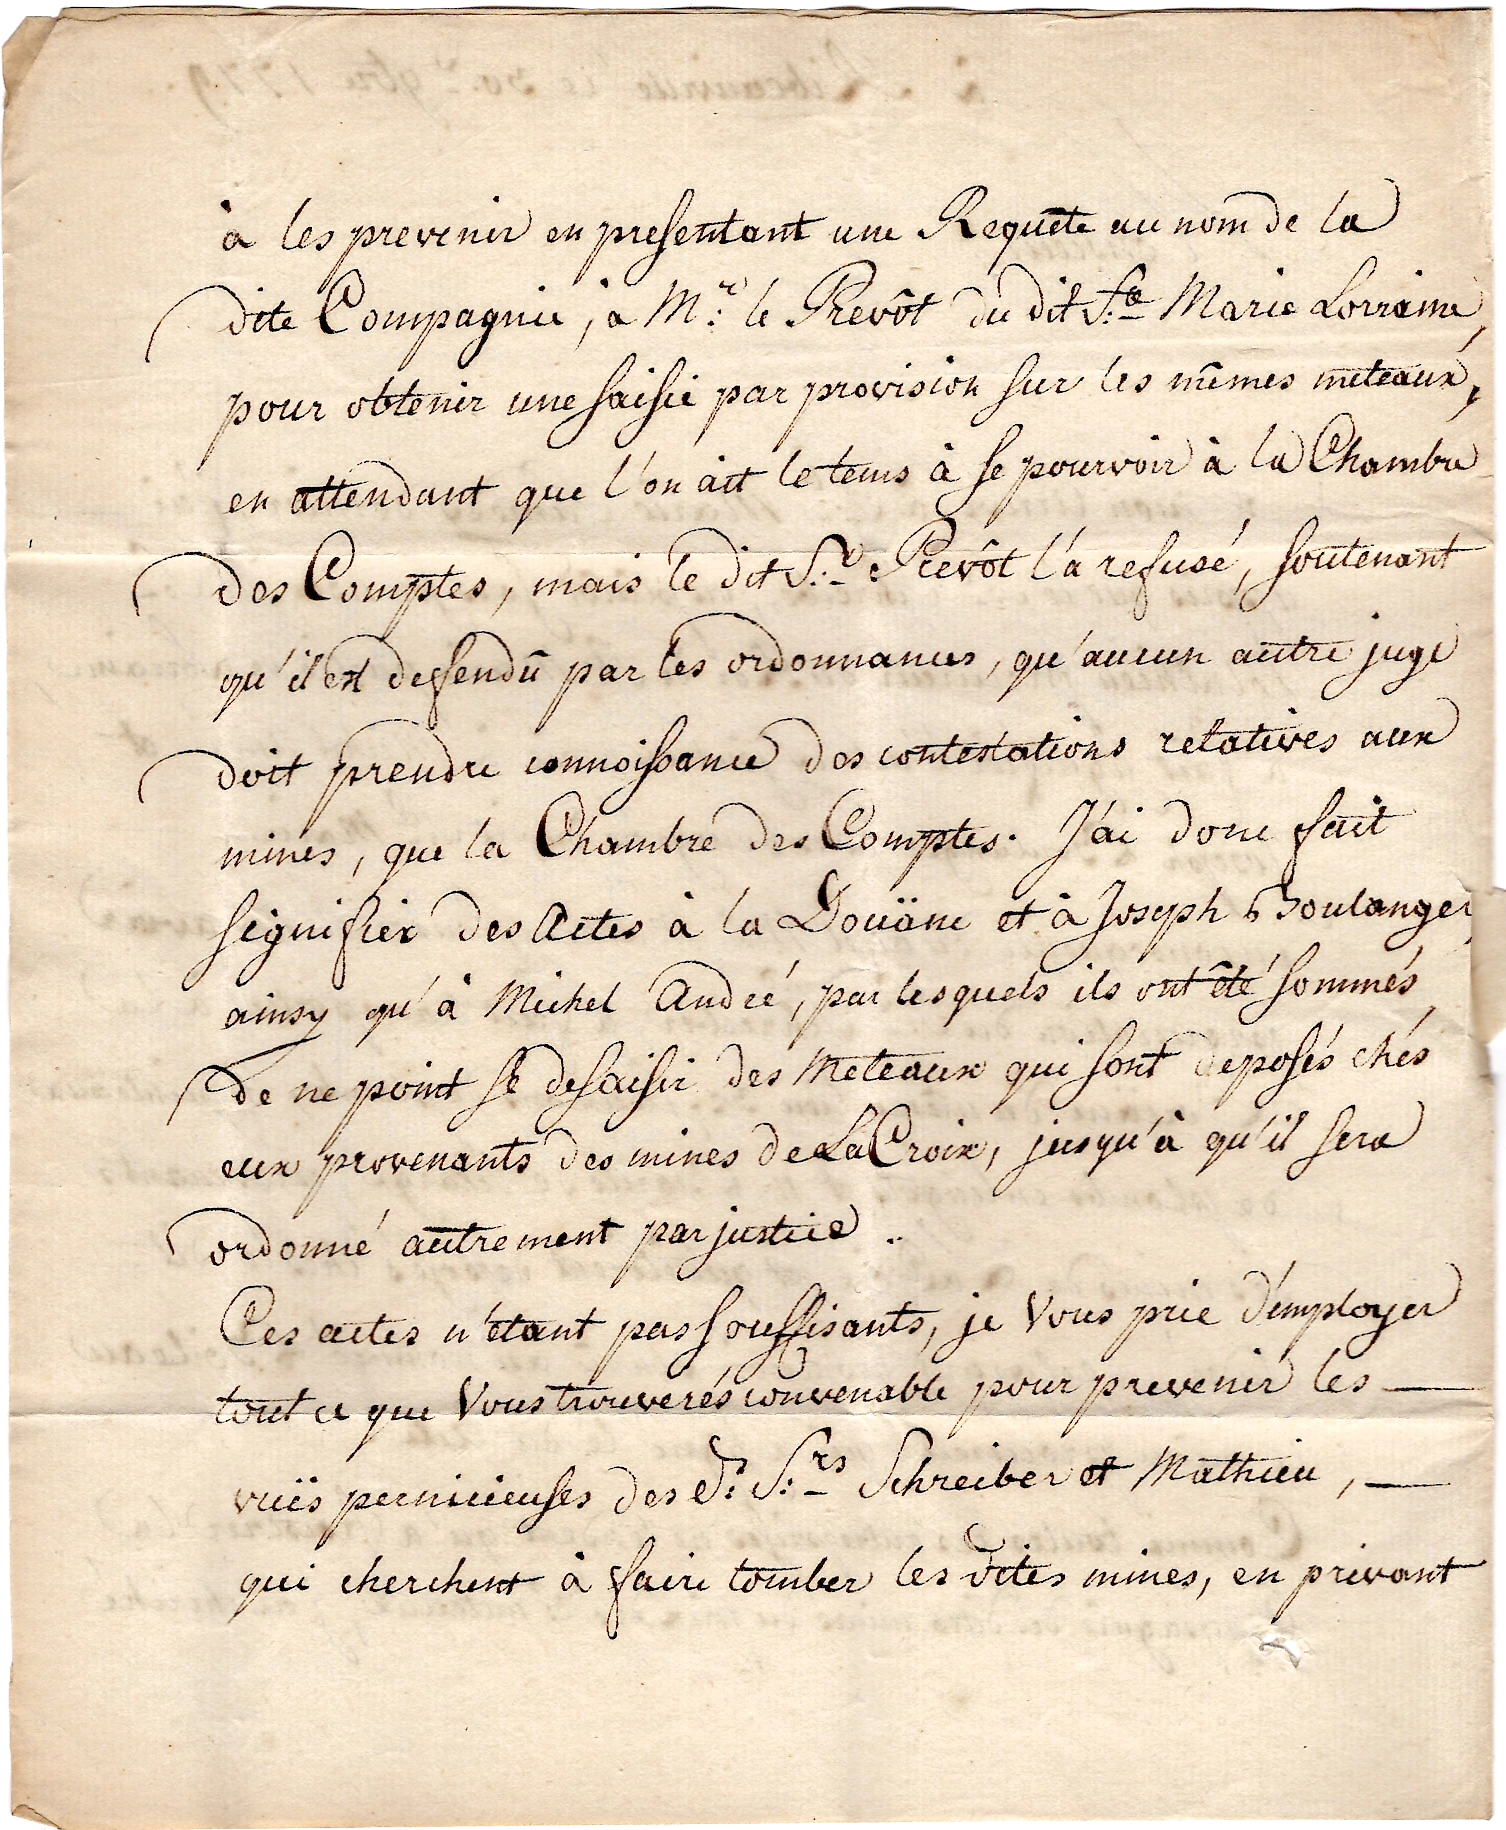 à les prevenir en presentant une Requête au nom de la
dite Compagnie, à M.r le Prevôt du dit S.te Marie Lorraine,
pour obtenir une saisie par provision sur les mêmes meteaux,
en attendant que l'on ait le tems à se pourvoir à la Chambre
des Comptes, mais le dit S.r Prevôt l'a refusé, soutenant
qu'il est deffendû par les ordonnances, qu'aucun autre juge
doit prendre connoissance des contestations relatives aux
mines, que la Chambre des Comptes. J'ai donc fait
signifier des Actes à la Douäne et à Joseph Boulanger,
ainsy qu'à Michel André, par lesquels ils ont êté sommés,
de ne point se desaisir des Meteaux qui sont deposés chés
eux provenants des mines de La Croix, jusqu'à qu'il sera
ordonné autrement par justice.
Ces actes n'étant pas souffisants, je Vous prie d'employer
tout ce que Vous trouverés convenable pour prevenir les —
vuës pernicieuses des d.s S.rs Schreiber et Mathieu, —
qui cherchent à faire tomber les dites mines, en privant